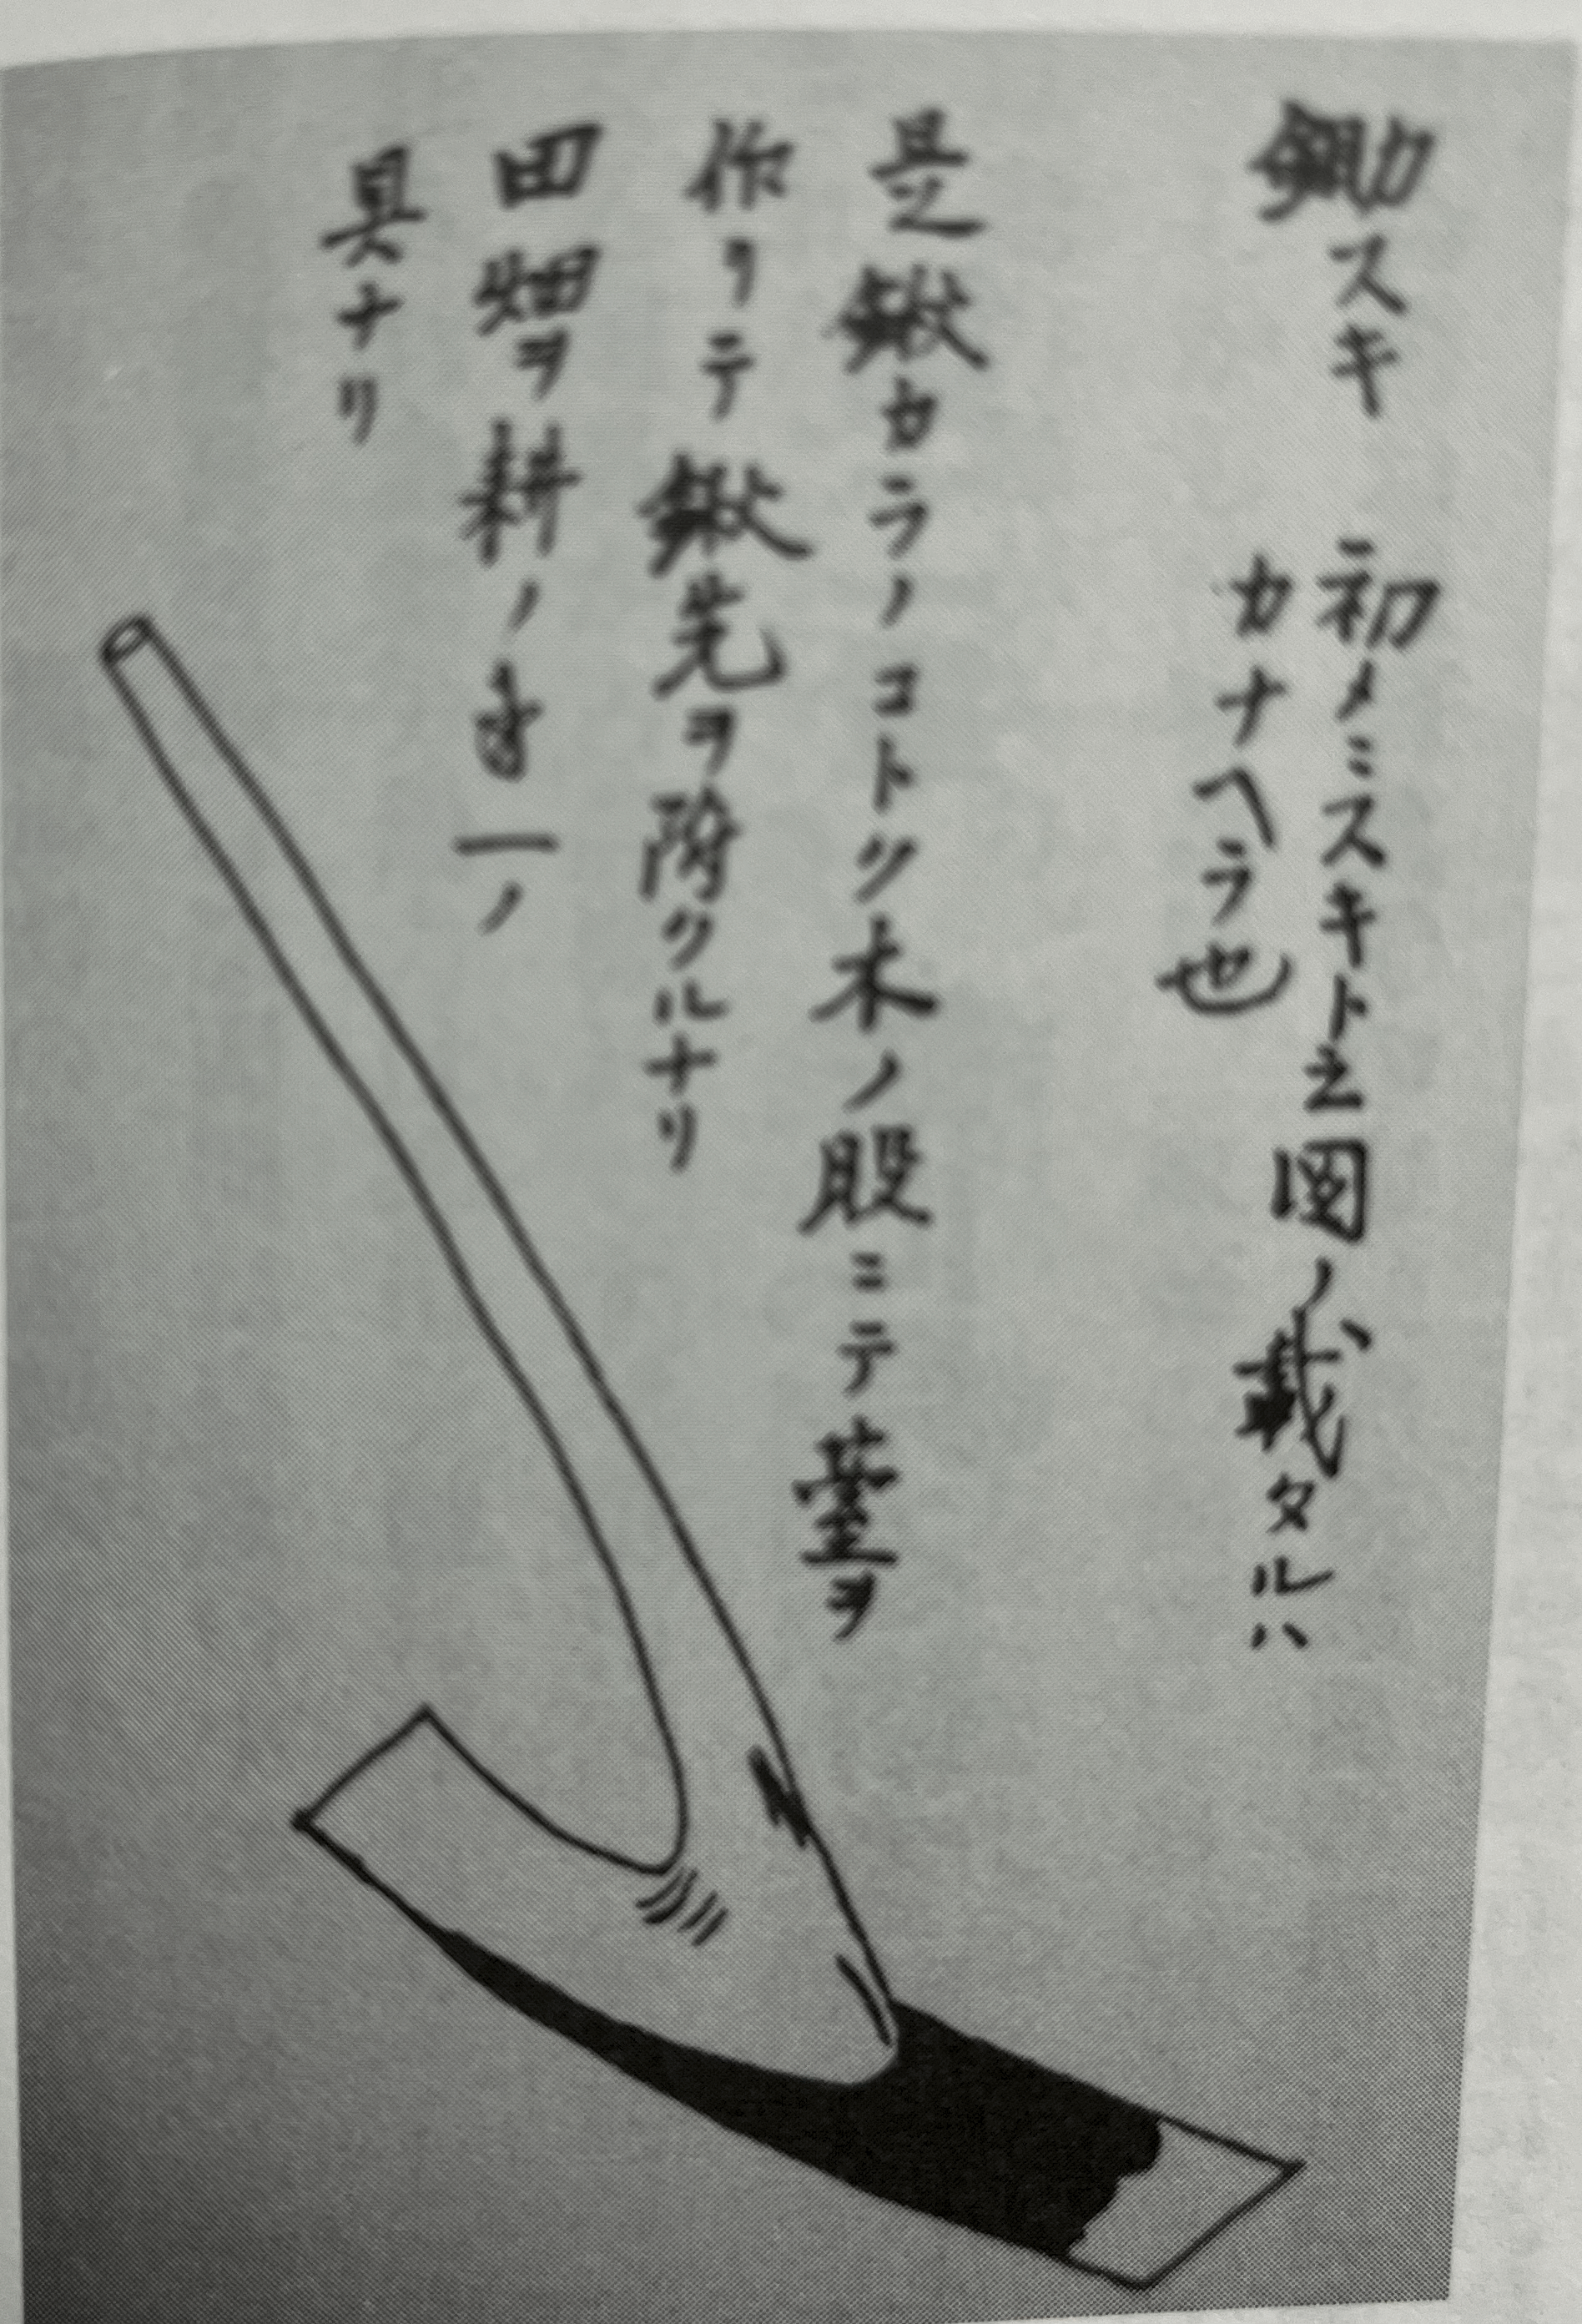 鋤スキ
初メニスキト云図ノ載タルハ
カナヘラ也
是之鍬カラノコトク木ノ股ニテ台ヲ
作リテ鍬先ヲ附クルナリ
田畑ヲ耕ノ一ノ
具ナリ